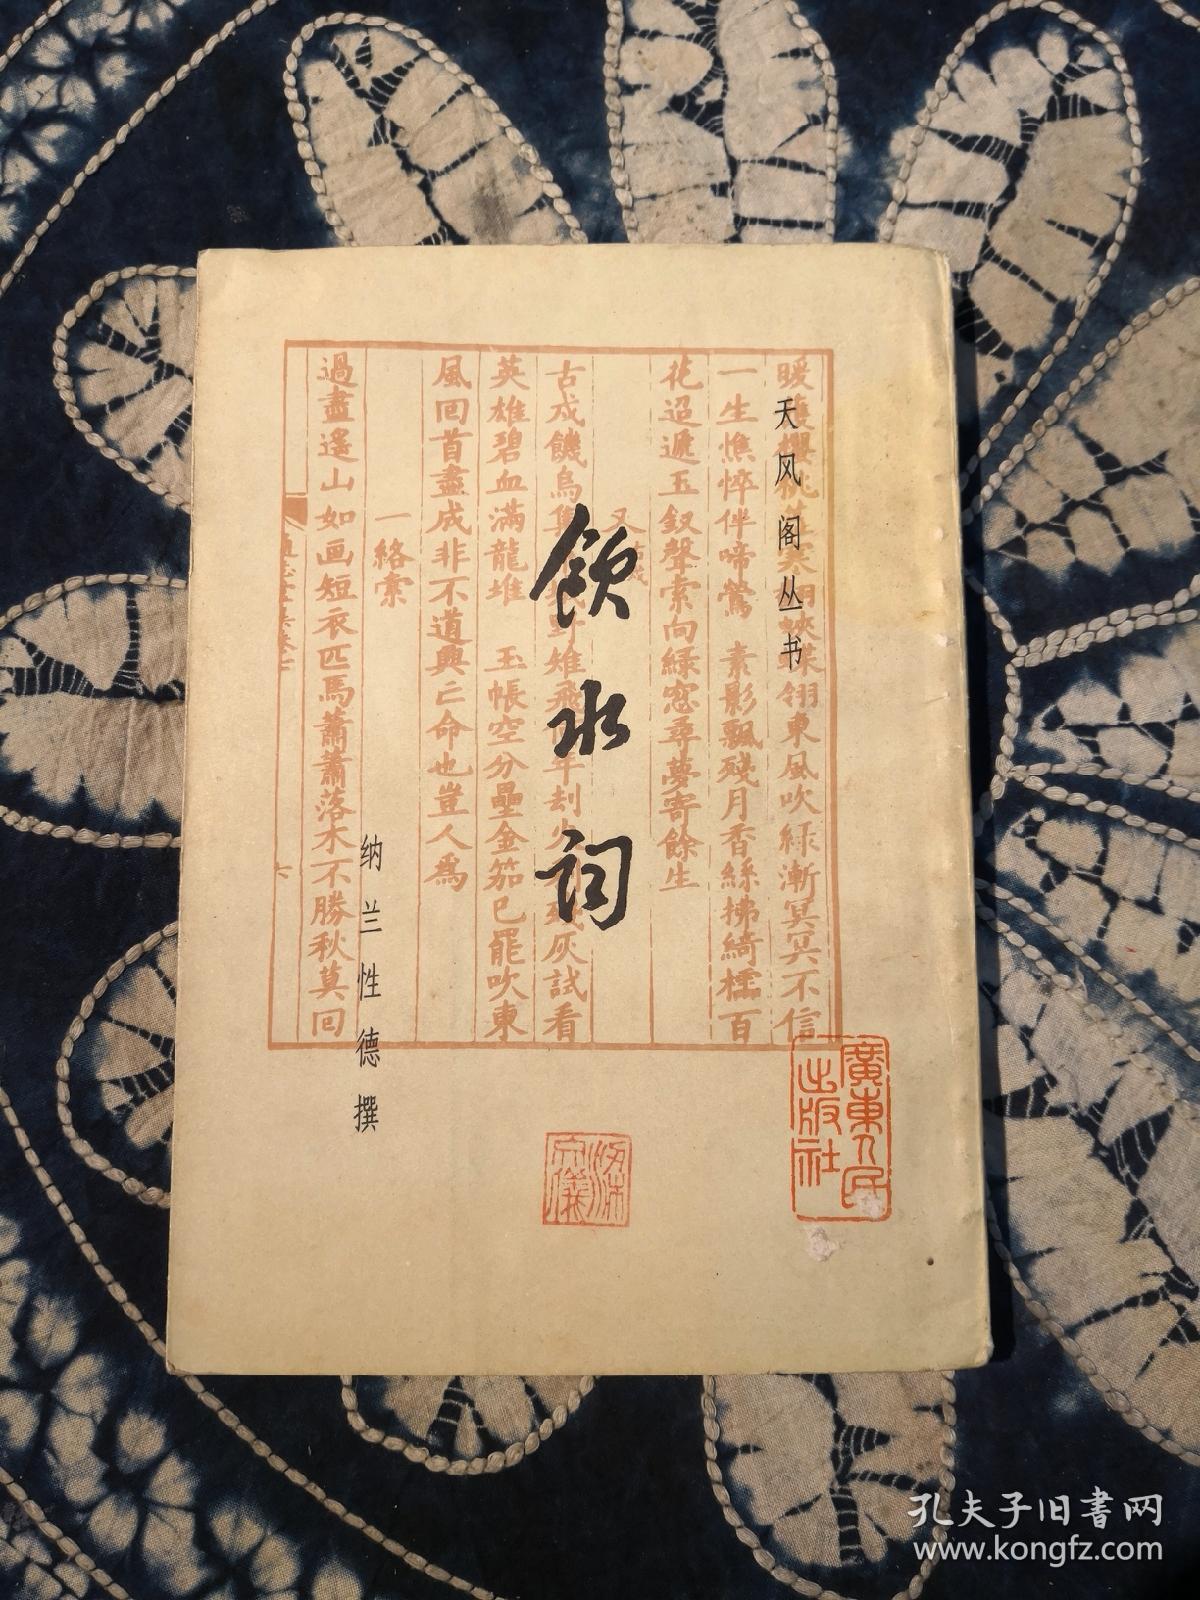 天风阁丛书
飲水词
纳兰性德撰
暖護櫻桃蕊寒翻蛺蝶翎東風吹綠漸冥冥不信
一生憔悴伴啼鶯 素影飄殘月香絲拂綺櫺百
花迢遞玉釵聲索向綠窓尋夢寄餘生
又
古戍饑烏集 野雉飛 年刦火 殘灰試看
英雄碧血滿龍堆 玉帳空分壘金笳已罷吹東
風回首盡成非不道興亡命也豈人爲
一絡索
過盡遙山如画短衣匹馬蕭蕭落木不勝秋莫回
六
廣東人民
出版社
孔夫子旧書网
www.kongfz.com